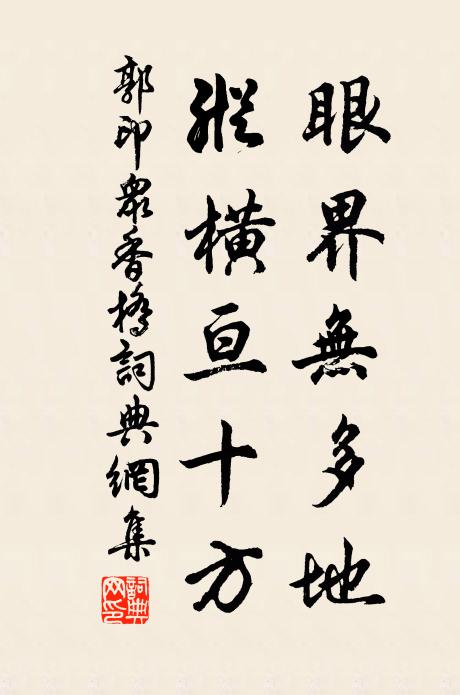 眼界無多地
縱橫亘十方
郭印衆香橋詞典網集
詞典网印